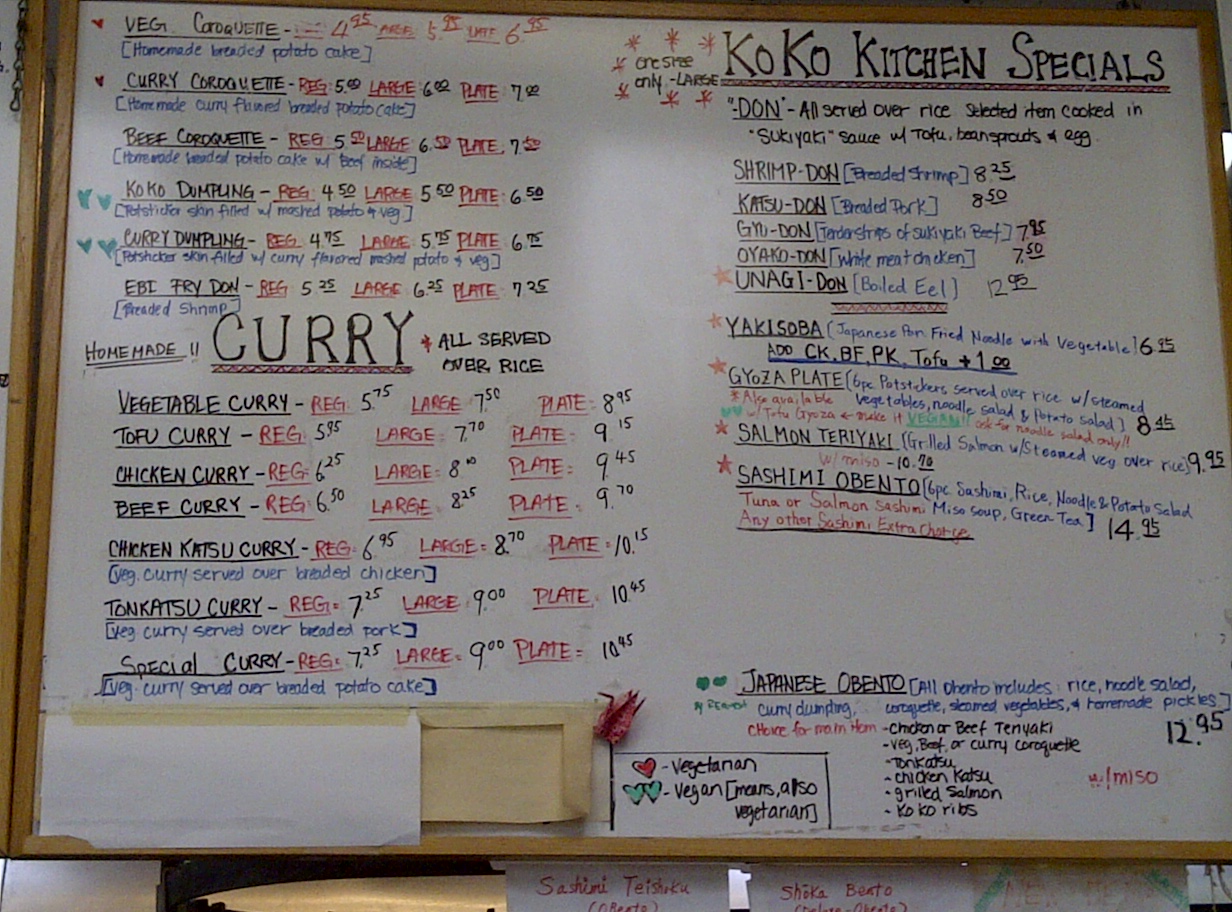 VEG. COROQUETTE - 4.95 LARGE 5.95 PLATE 6.95
[Homemade breaded potato cake]
CURRY COROQUETTE - REG: 5.00 LARGE: 6.00 PLATE: 7.00
[Homemade curry flavored breaded potato cake]
BEEF COROQUETTE - REG 5.50 LARGE: 6.50 PLATE: 7.50
[Homemade breaded potato cake w/ Beef inside]
KOKO DUMPLING - REG: 4.50 LARGE: 5.50 PLATE: 6.50
[Potsticker skin filled w/ mashed potato & veg]
CURRY DUMPLING - REG: 4.75 LARGE: 5.75 PLATE: 6.75
[Potsticker skin filled w/ curry flavored mashed potato & veg]
EBI FRY DON - REG 5.25 LARGE: 6.25 PLATE: 7.25
[Breaded Shrimp]
HOMEMADE!! CURRY * ALL SERVED
OVER RICE
VEGETABLE CURRY - REG: 5.75 LARGE: 7.50 PLATE: 8.95
TOFU CURRY - REG: 5.95 LARGE: 7.70 PLATE: 9.15
CHICKEN CURRY - REG: 6.25 LARGE: 8.00 PLATE: 9.45
BEEF CURRY - REG: 6.50 LARGE: 8.25 PLATE: 9.70
CHICKEN KATSU CURRY - REG: 6.95 LARGE: 8.70 PLATE: 10.15
[Veg. curry served over breaded chicken]
TONKATSU CURRY - REG: 7.25 LARGE: 9.00 PLATE: 10.45
[Veg curry served over breaded pork]
SPECIAL CURRY - REG: 7.25 LARGE: 9.00 PLATE: 10.45
[Veg. curry served over breaded potato cake]
* * *
* one size
only - LARGE
* * *
KOKO KITCHEN SPECIALS
"-DON" - All served over rice Selected item cooked in
"Sukiyaki" sauce w/ Tofu, beansprouts & egg.
SHRIMP-DON [Breaded Shrimp] 8.25
KATSU-DON [Breaded Pork] 8.50
GYU-DON [Tenderstrips of sukiyaki Beef] 7.95
OYAKO-DON [White meat chicken] 7.50
UNAGI-DON [Boiled Eel] 12.95
YAKISOBA [Japanese Pan Fried Noodle with Vegetable] 6.95
ADD CK, BF, PK, Tofu + 1.00
GYOZA PLATE [6pc Potstickers served over rice w/ steamed
vegetables, noodle salad & Potato salad] 8.45
*Also available
w/ Tofu Gyoza ← make it VEGAN!! ask for noodle salad only!!
SALMON TERIYAKI [Grilled Salmon w/ Steamed veg over rice] 9.95
w/ miso - 10.70
SASHIMI OBENTO [6pc Sashimi, Rice, Noodle & Potato Salad
Miso soup, Green Tea] 14.95
Tuna or Salmon Sashimi
Any other Sashimi Extra Charge
JAPANESE OBENTO [All Obento includes: rice, noodle salad,
By Request curry dumpling, coroquette, steamed vegetables, & homemade pickles]
12.95
Choice for main item - Chicken or Beef Teriyaki
- Veg, Beef, or curry coroquette
- Tonkatsu
- chicken Katsu
- grilled Salmon
- Koko ribs
w/miso
- Vegetarian
- Vegan [means, also
vegetarian]
Sashimi Teishoku
(OBento)
Shōka Bento
(Deluxe-Obento)